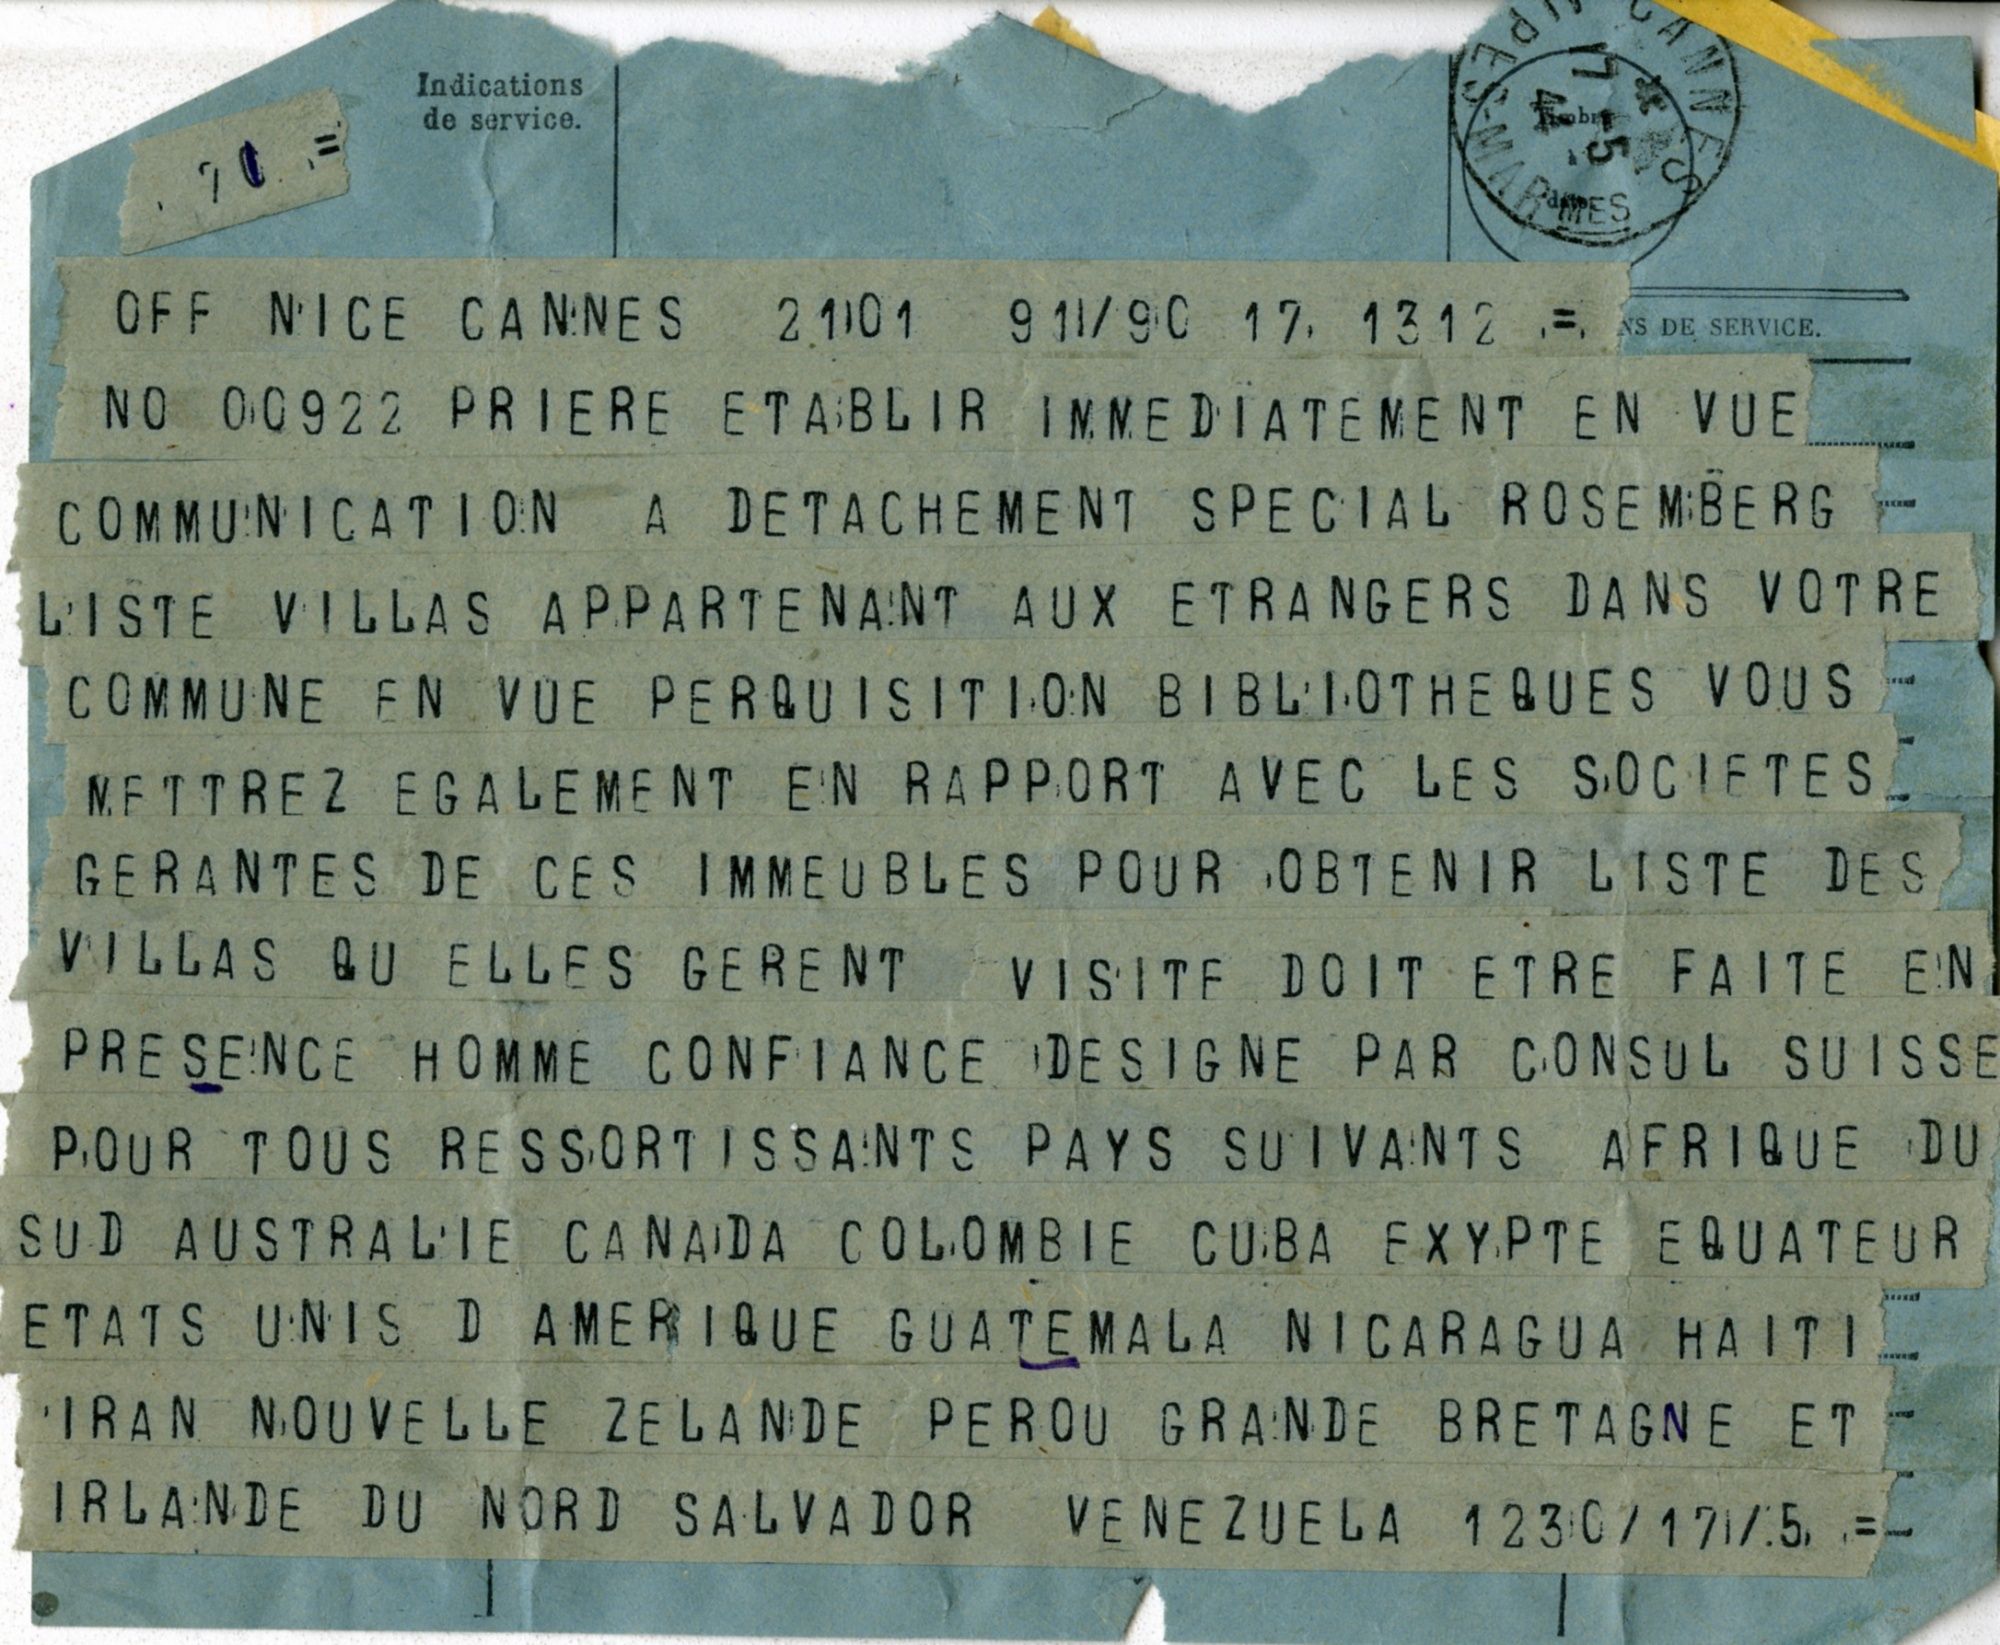 Indications
de service.
CANNES
ALPES-MARMES
17-5
44
Timbre
date
71 .=
OFF NICE CANNES 2101 91/90 17. 1312 .=.
NS DE SERVICE.
NO 00922 PRIERE ETABLIR IMMEDIATEMENT EN VUE
COMMUNICATION A DETACHEMENT SPECIAL ROSEMBERG
LISTE VILLAS APPARTENANT AUX ETRANGERS DANS VOTRE
COMMUNE EN VUE PERQUISITION BIBLIOTHEQUES VOUS
METTREZ EGALEMENT EN RAPPORT AVEC LES SOCIETES
GERANTES DE CES IMMEUBLES POUR OBTENIR LISTE DES
VILLAS QU ELLES GERENT VISITE DOIT ETRE FAITE EN
PRESENCE HOMME CONFIANCE DESIGNE PAR CONSUL SUISSE
POUR TOUS RESSORTISSANTS PAYS SUIVANTS AFRIQUE DU
SUD AUSTRALIE CANADA COLOMBIE CUBA EXYPTE EQUATEUR
ETATS UNIS D AMERIQUE GUATEMALA NICARAGUA HAITI
IRAN NOUVELLE ZELANDE PEROU GRANDE BRETAGNE ET
IRLANDE DU NORD SALVADOR VENEZUELA 1230/17/.5. .=